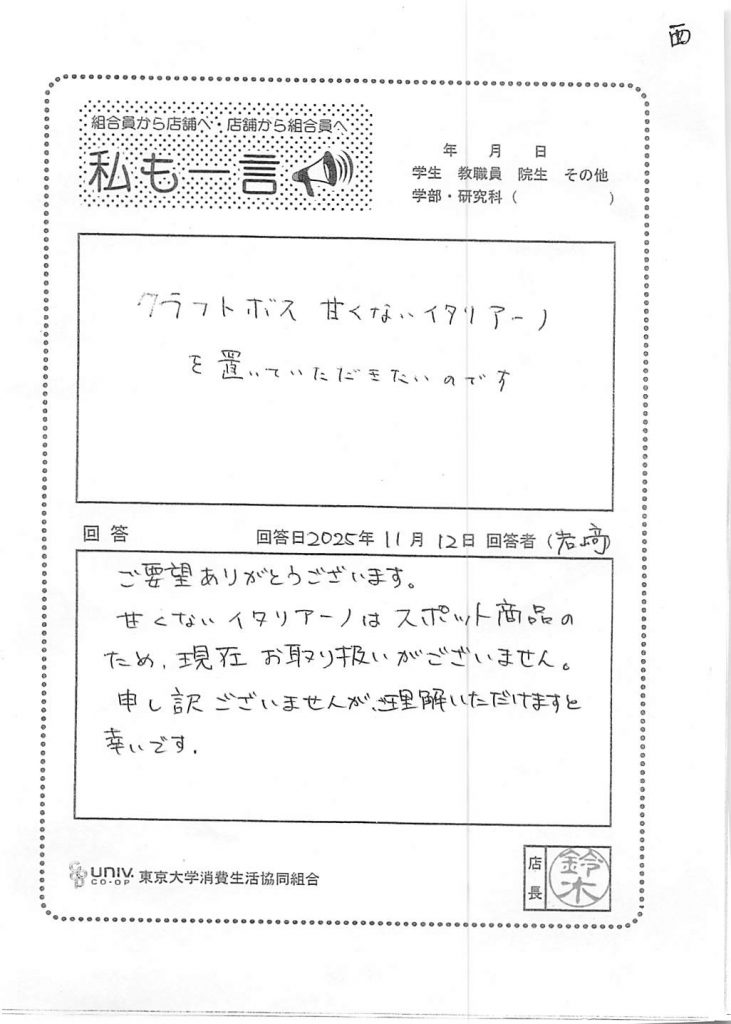 西
組合員から店舗へ・店舗から組合員へ
私も一言
年 月 日
学生 教職員 院生 その他
学部・研究科( )
クラフトボス 甘くないイタリアーノ
を置いていただきたいのです
回答 回答日2025年11月12日 回答者(岩崎)
ご要望ありがとうございます。
甘くないイタリアーノはスポット商品の
ため、現在お取り扱いがございません。
申し訳ございませんが、ご理解いただけますと
幸いです.
UNIV. CO-OP 東京大学消費生活協同組合
店長 鈴木